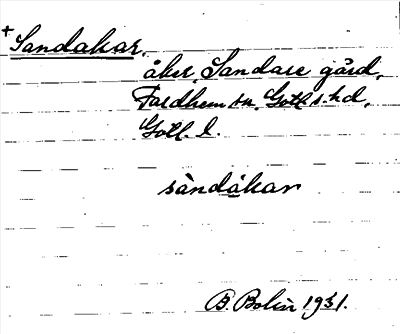 +Sandakar,
åker, Sandare gård,
Fardhem sn. Gotl. s. hd,
Gotl. l.
sàndákar
B. Bolin 1931.